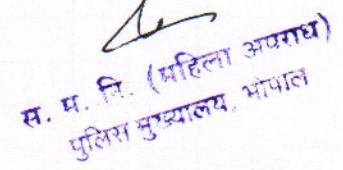 स. प. नि. (महिला अपराध)
पुलिस मुख्यालय, भोपाल